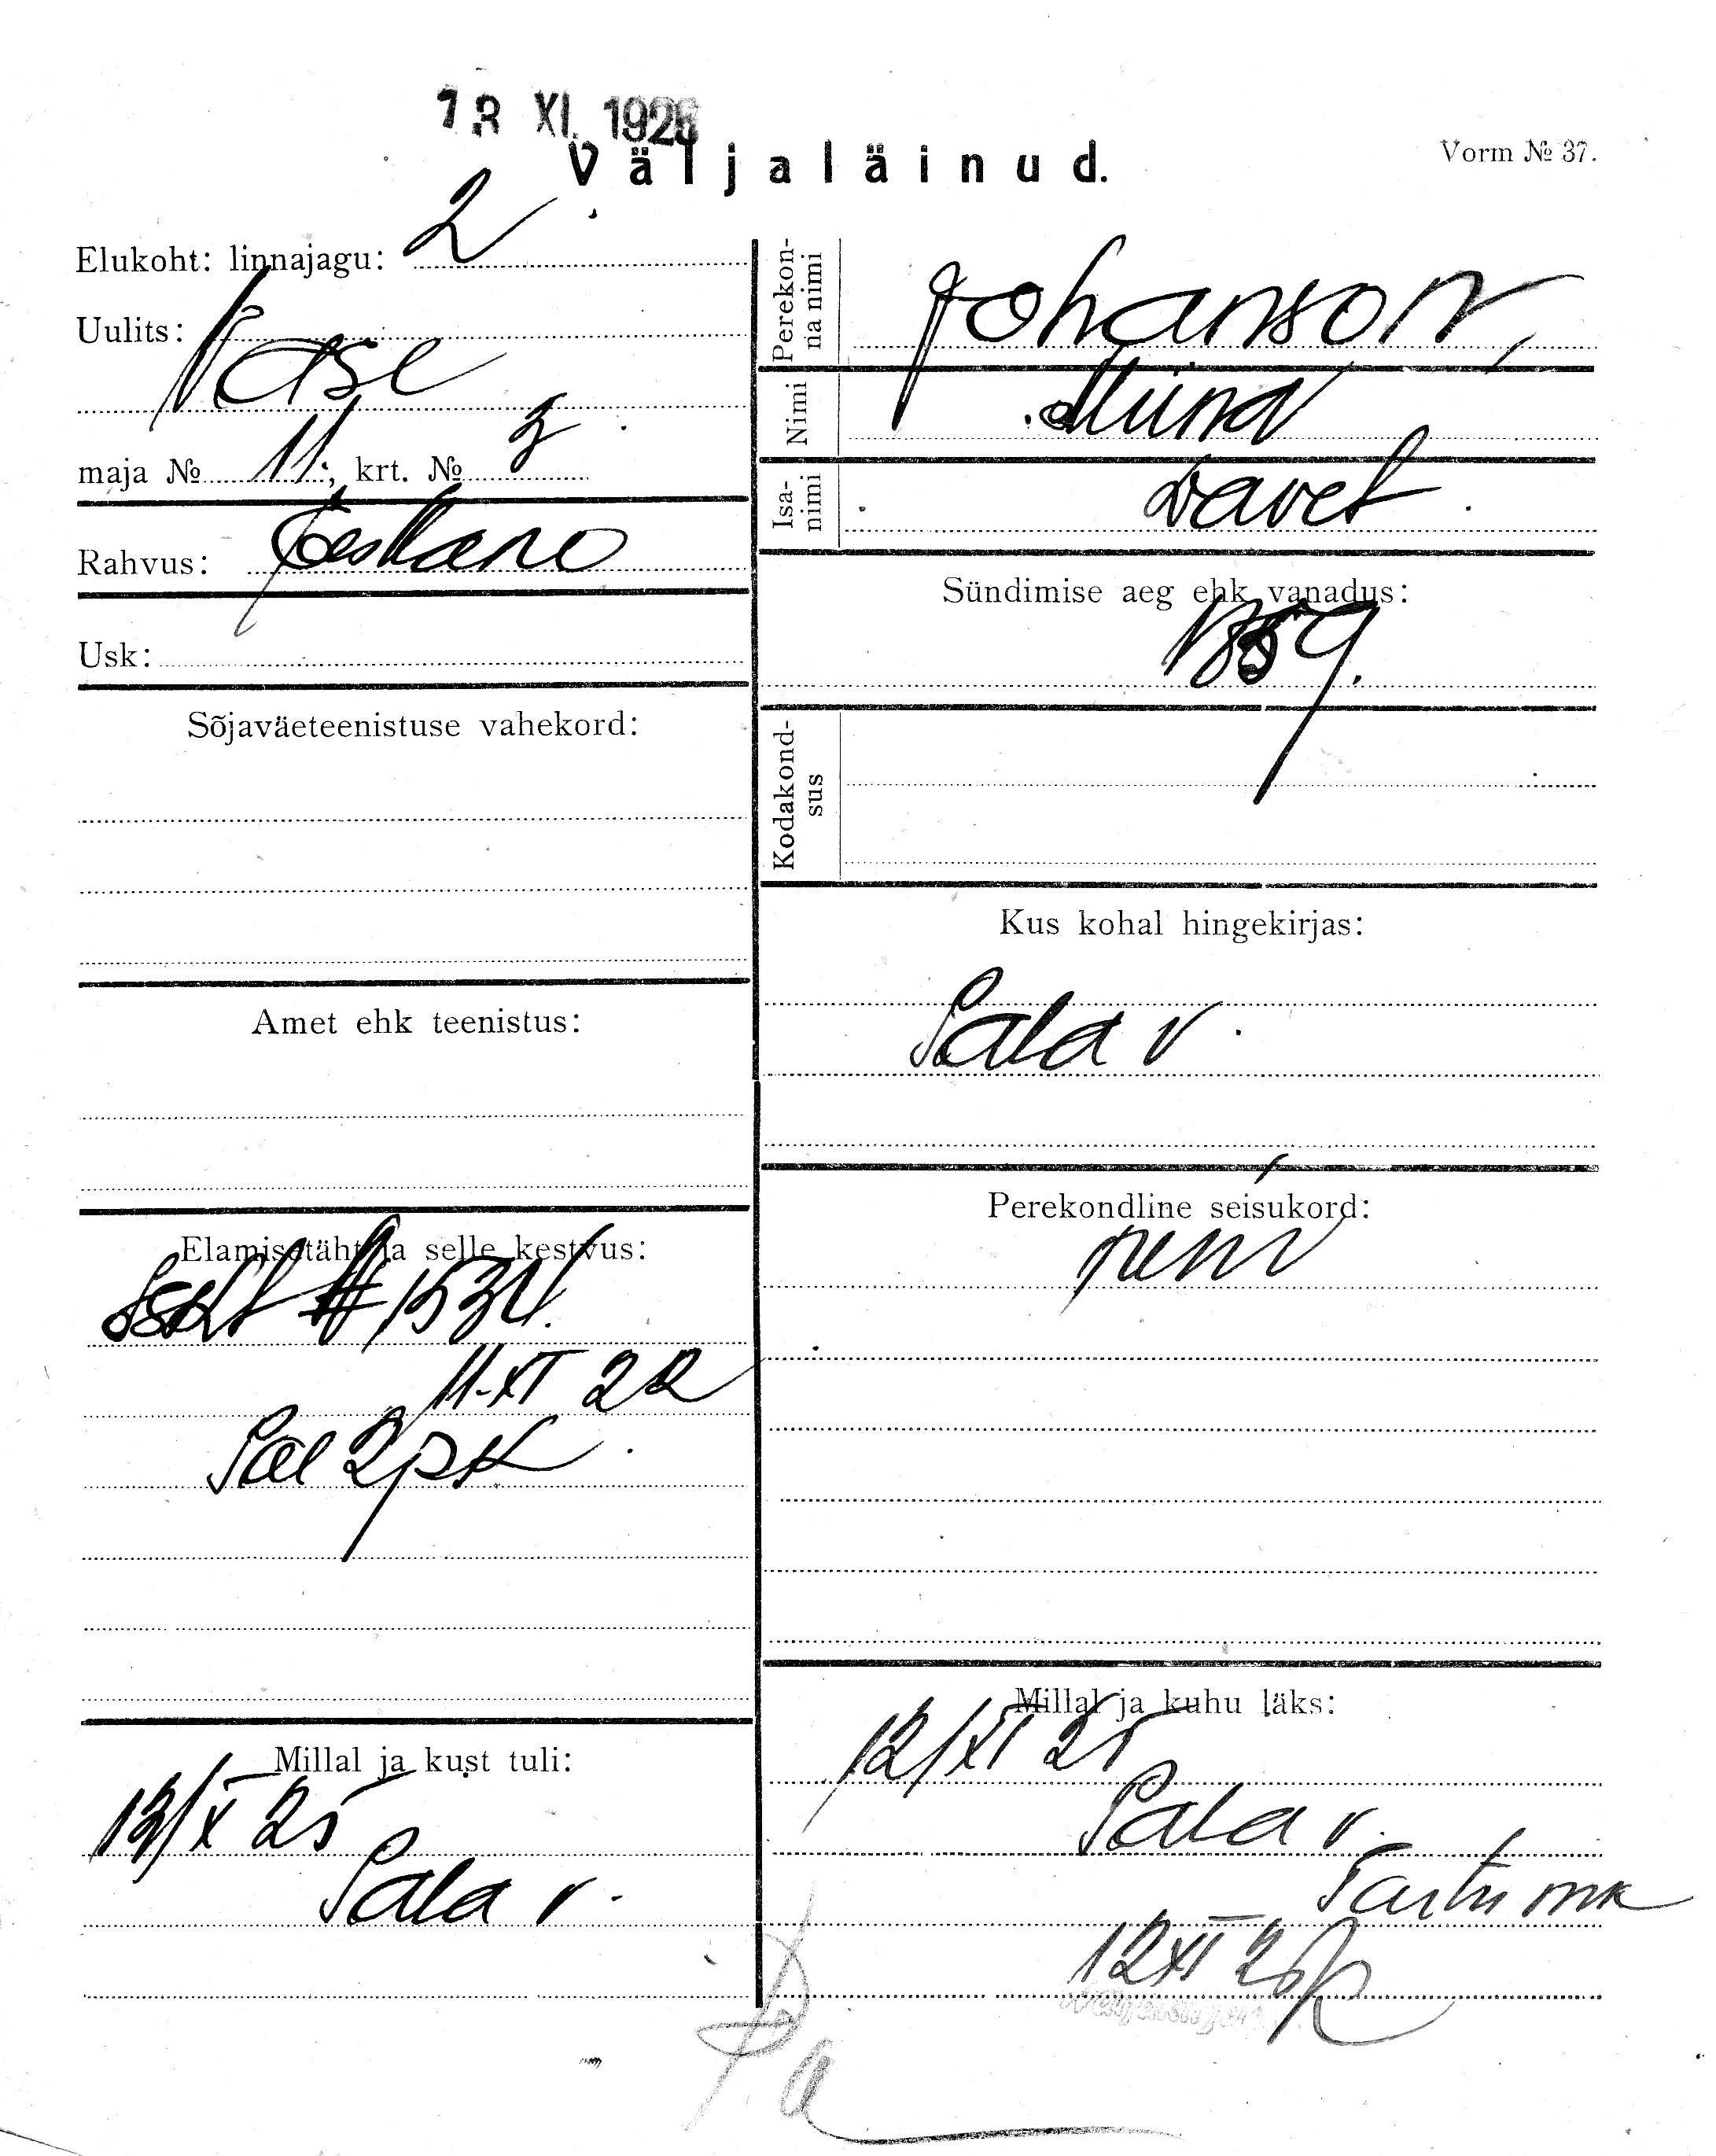 13 XI. 1925
Väljaläinud.
Vorm № 37.
Elukoht: linnajagu: 2
Uulits: Vase
maja № 11; krt. № 3
Rahvus: Eestlane
Usk:
Sõjaväeteenistuse vahekord:
Amet ehk teenistus:
Elamisetäht ja selle kestvus:
Isikt № 1534.
11-XI 22
Pal 2 pk
Millal ja kust tuli:
13/X 25
Pala v.
Perekonna nimi
Johanson,
Nimi
Miina
Isanimi
Davet
Sündimise aeg ehk vanadus:
1859.
Kodakondsus
Kus kohal hingekirjas:
Pala v.
Perekondline seisukord:
Millal ja kuhu läks:
12/XI 25
Pala v.
Tartu mk
12 XI 25